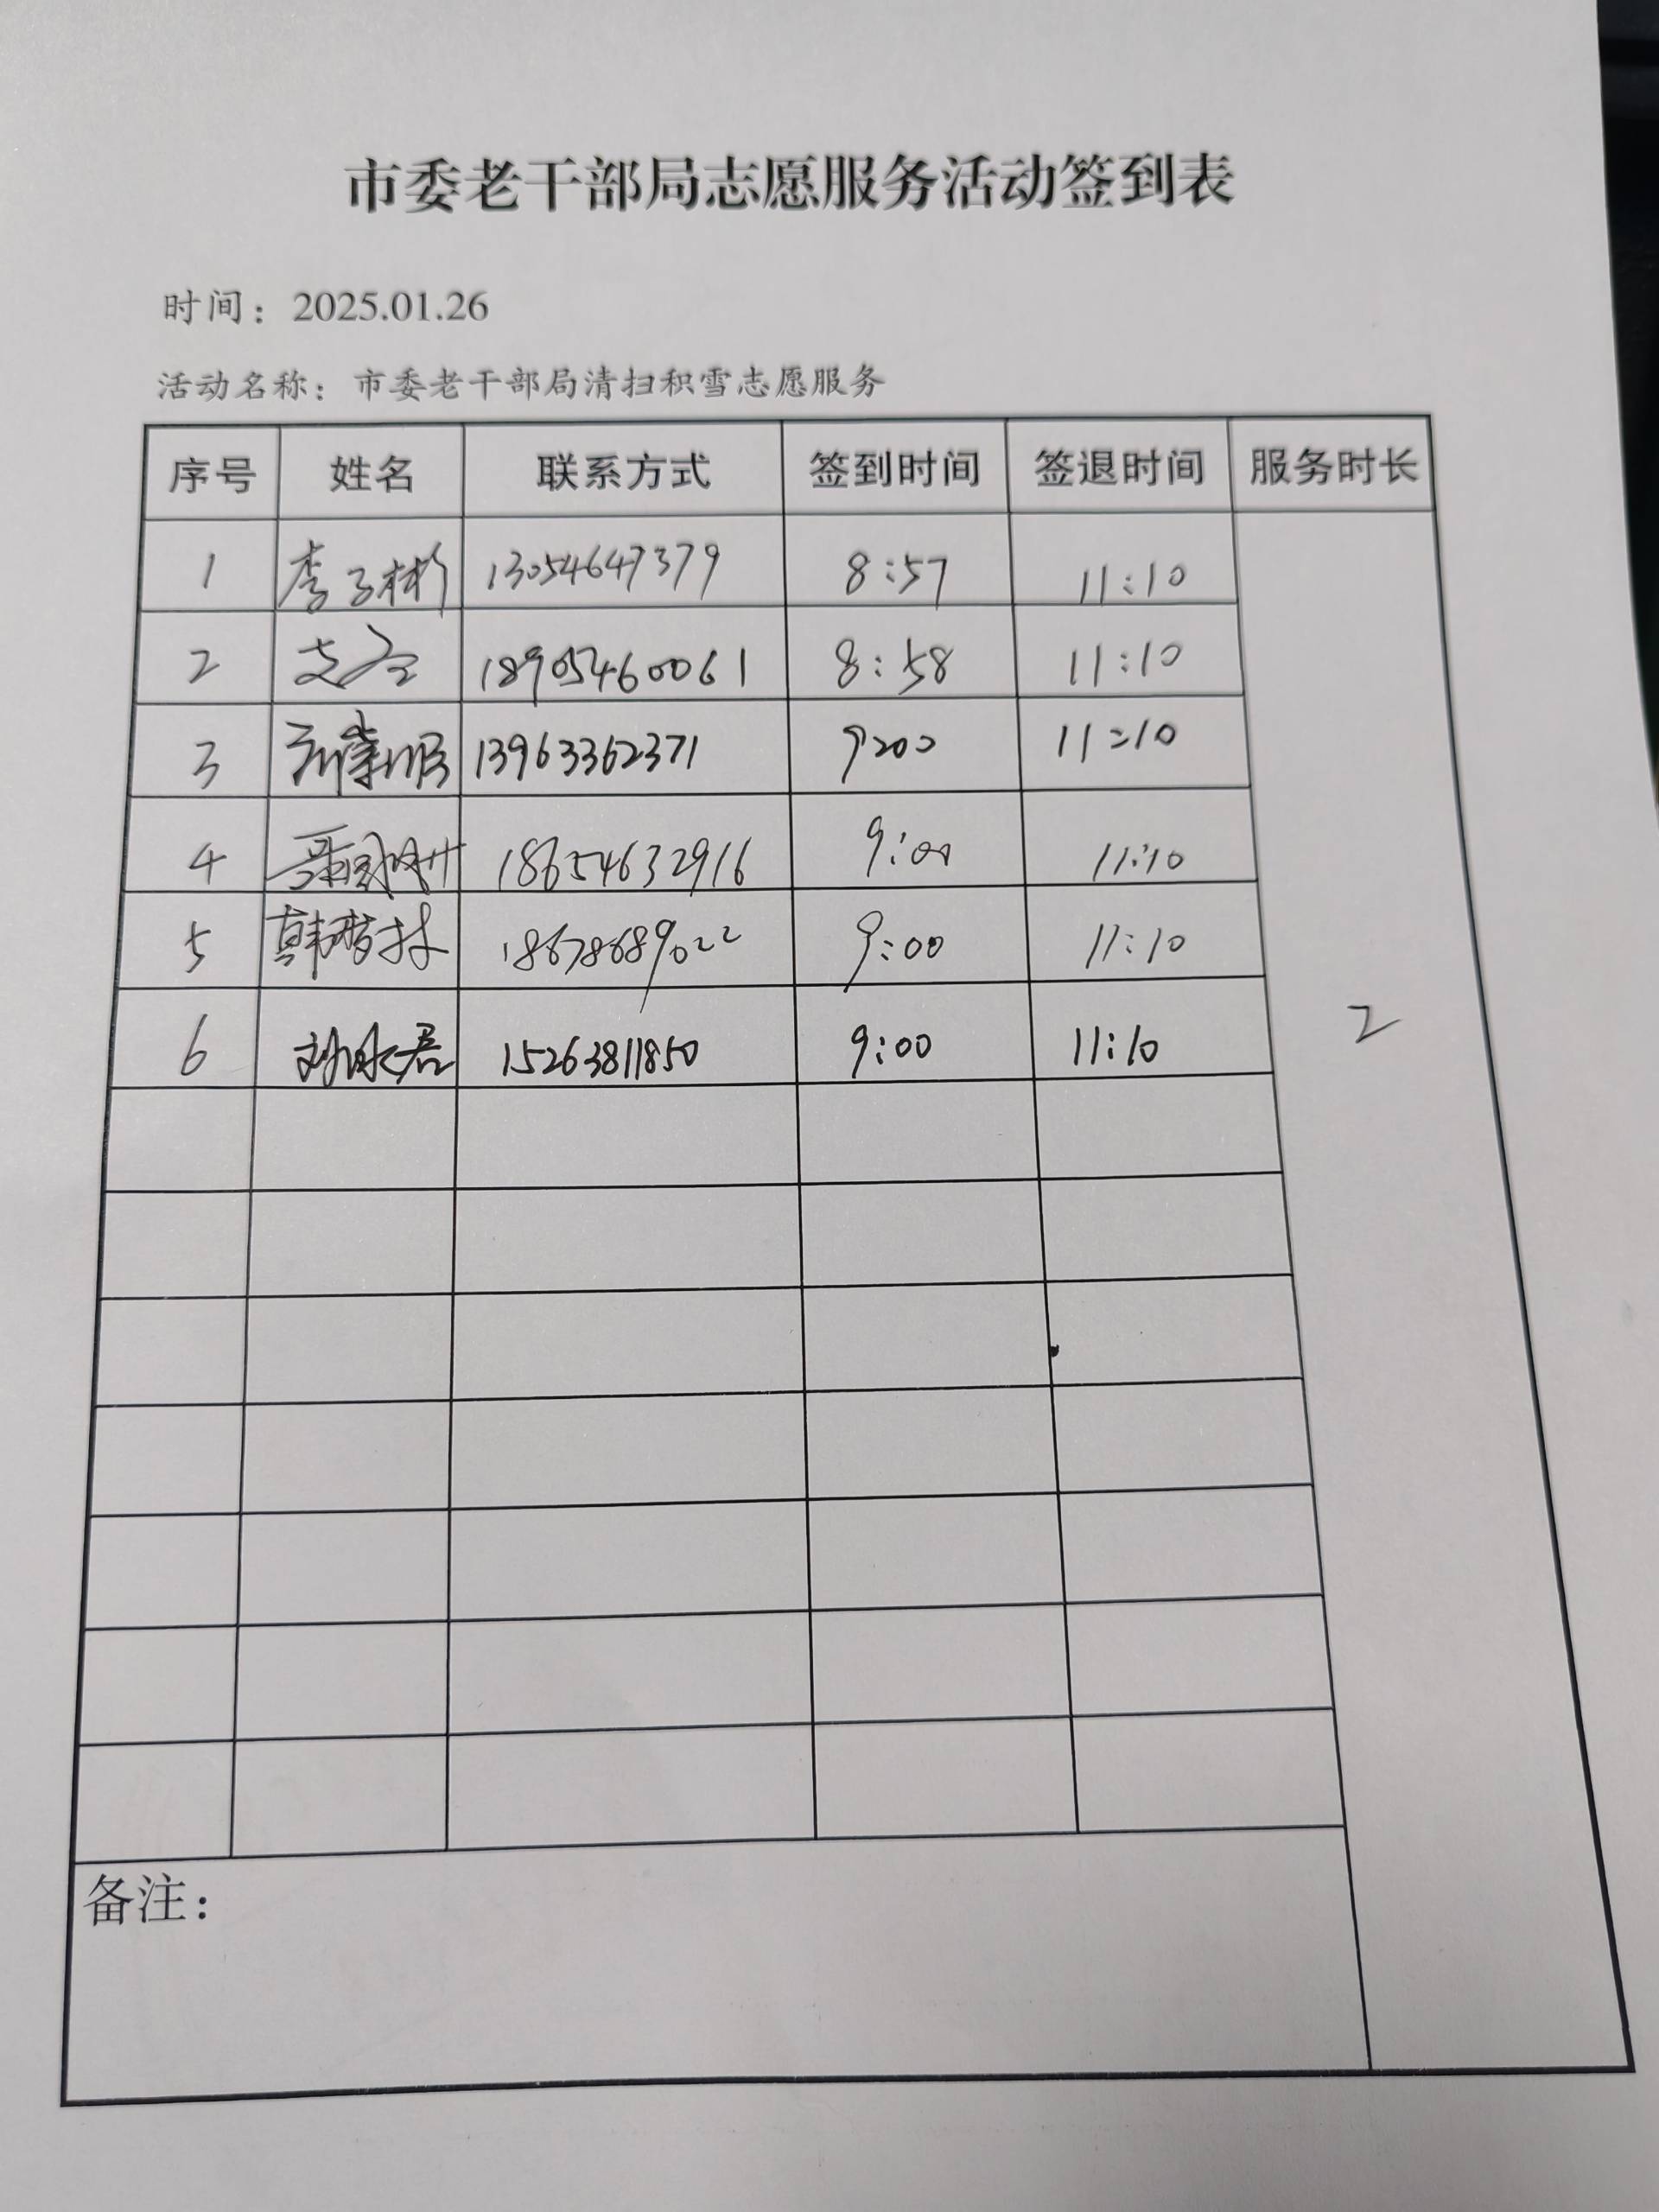 市委老干部局志愿服务活动签到表
时间：2025.01.26
活动名称：市委老干部局清扫积雪志愿服务
序号 姓名 联系方式 签到时间 签退时间 服务时长
1 李子彬 13054647379 8:57 11:10
2 18905460061 8:58 11:10
3 13963362371 9:00 11:10
4 18654632916 9:00 11:10
5 韩梦林 18678689022 9:00 11:10
2
6 刘冰君 15263811850 9:00 11:10
备注：